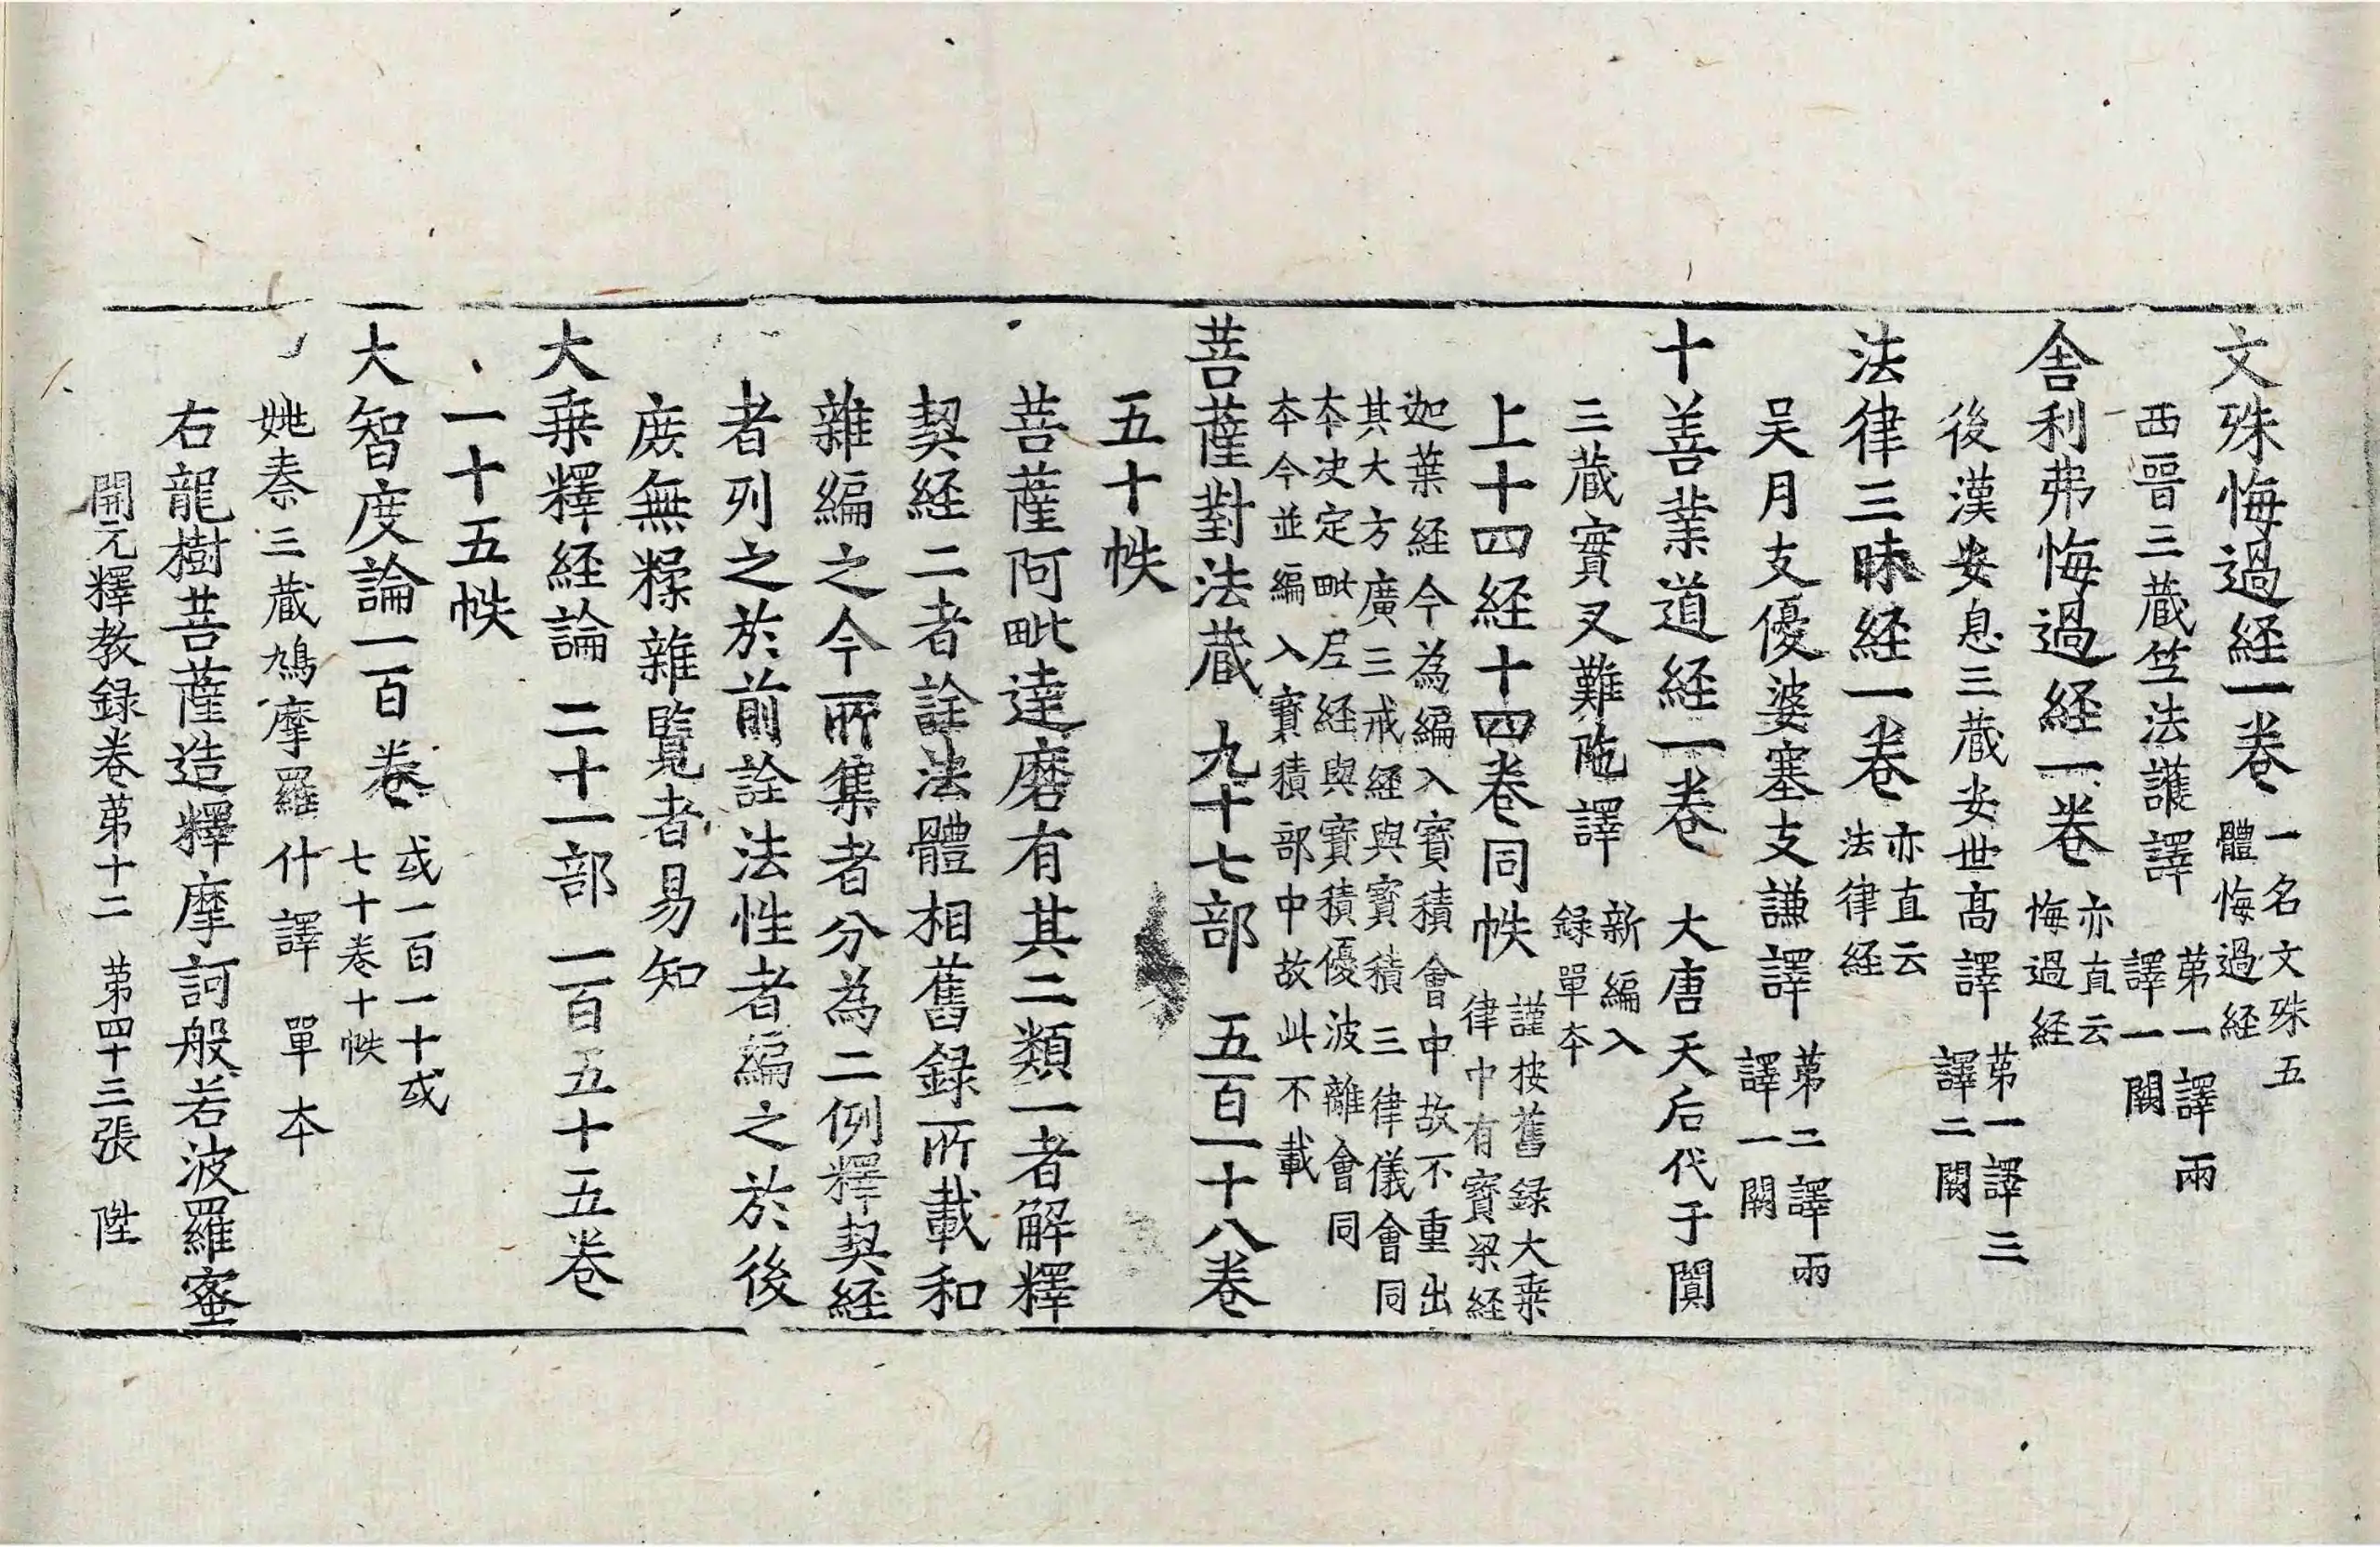 文殊悔過経一卷 一名文殊五
體悔過経
西晉三蔵竺法護譯 苐一譯兩
譯一闕
舎利弗悔過経一卷 亦直云
悔過経
後漢安息三蔵安世髙譯 苐一譯三
譯二闕
法律三昧経一卷 亦直云
法律経
吴月支優婆塞支謙譯 苐二譯兩
譯一闕
十善業道経一卷 大唐天后代于闐
三蔵實叉難陁譯 新編入
録單夲
上十四経十四卷同帙 謹按舊録大乗
律中有寳梁経
迦葉経今為編入寳積會中故不重出
其大方廣三戒経與寳積三律儀會同
夲决定毗尼経與寳積優波離會同
夲今並編入寳積部中故此不載
菩薩對法蔵 九十七部 五百一十八卷
五十帙
菩薩阿毗達磨有其二類一者解釋
契経二者詮法體相舊録所載和
雜編之今所集者分為二例釋契経
者列之於前詮法性者編之於後
庻無糅雜覽者易知
大乗釋経論 二十一部 一百五十五卷
一十五帙
大智度論一百卷 或一百一十或
七十卷十帙
姚秦三蔵鳩摩羅什譯 單夲
右龍樹菩薩造釋摩訶般若波羅蜜
開元釋教録卷苐十二 苐四十三張 陞